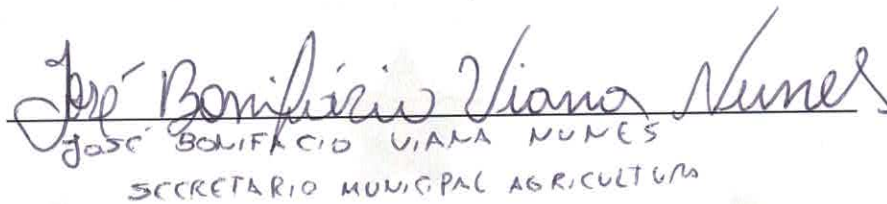 José Bonifácio Viana Nunes
JOSÉ BONIFACIO VIANA NUNES
SECRETARIO MUNICIPAL AGRICULTURA